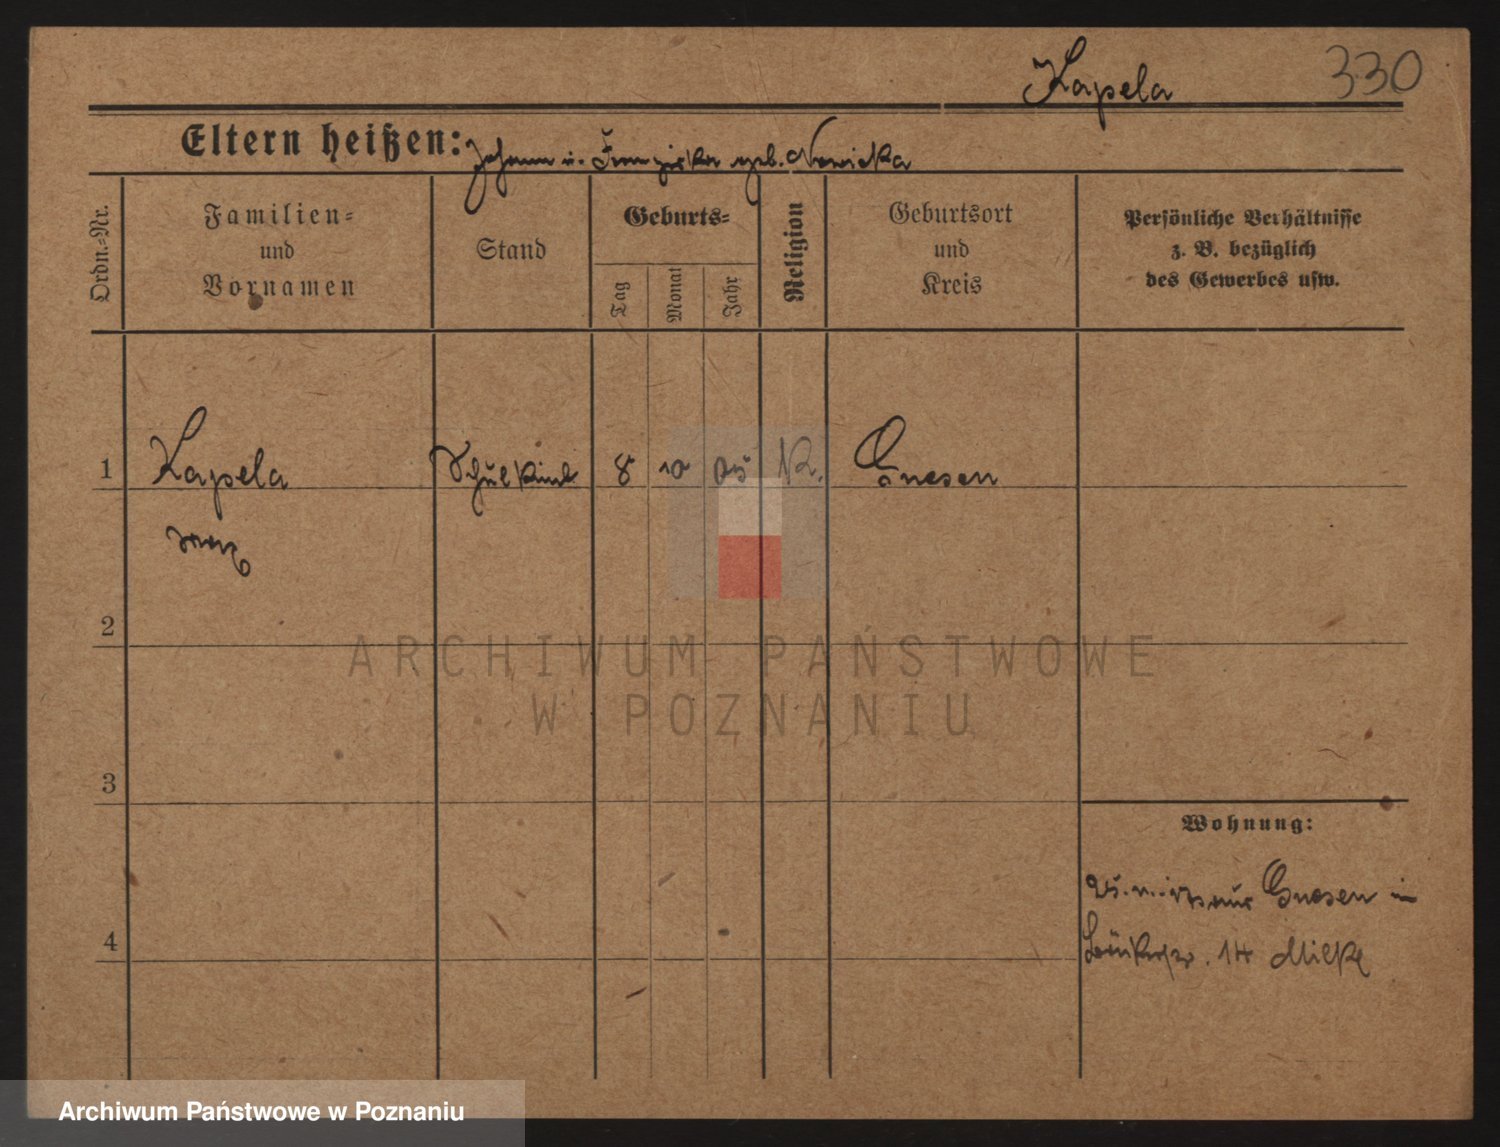 Kapela 330
Eltern heißen: Johann u. Franziska geb. Nowicka
Ordn.-Nr.
Familien-
und
Vornamen
Stand
Geburts-
Tag
Monat
Jahr
Religion
Geburtsort
und
Kreis
Persönliche Verhältnisse
z. B. bezüglich
des Gewerbes usw.
1 Kapela Schulkind 8 10 05 K. Gnesen
2
3
4
Wohnung:
Gnesen in
14 Milke
ARCHIWUM PAŃSTWOWE
W POZNANIU
Archiwum Państwowe w Poznaniu